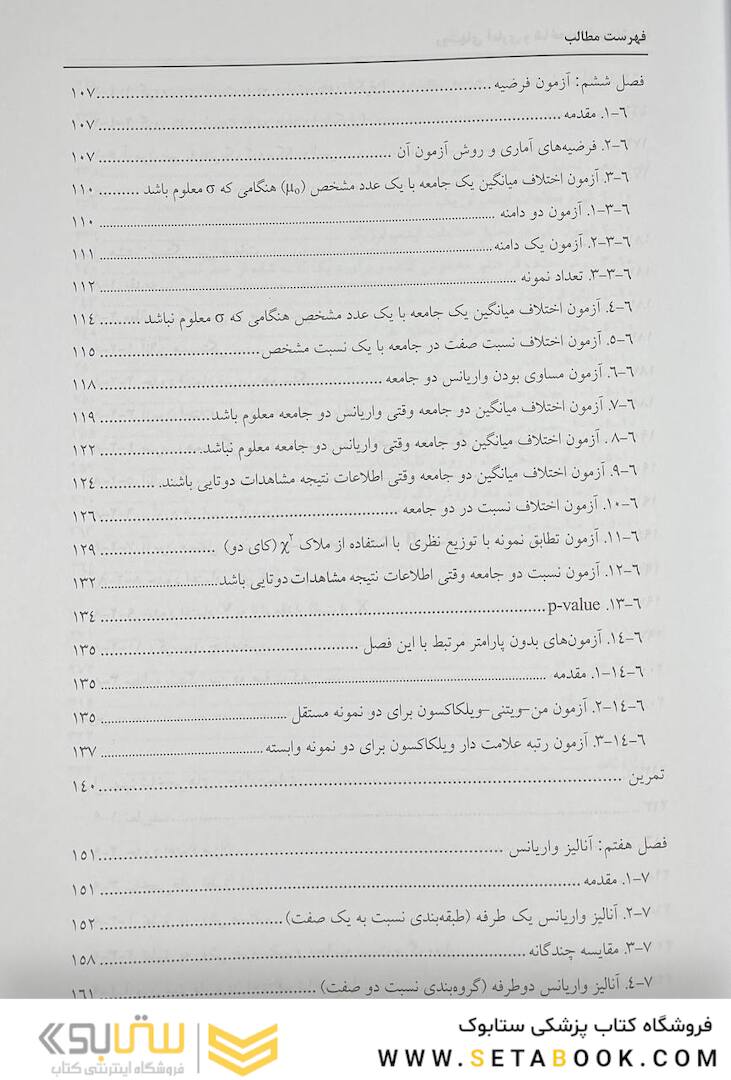 فهرست مطالب
فصل ششم: آزمون فرضیه ........ ۱۰۷
۶-۱. مقدمه ........ ۱۰۷
۶-۲. فرضیه‌های آماری و روش آزمون آن ........ ۱۰۷
۶-۳. آزمون اختلاف میانگین یک جامعه با یک عدد مشخص (μ₀) هنگامی که σ معلوم باشد ........ ۱۱۰
۶-۳-۱. آزمون دو دامنه ........ ۱۱۰
۶-۳-۲. آزمون یک دامنه ........ ۱۱۱
۶-۳-۳. تعداد نمونه ........ ۱۱۲
۶-۴. آزمون اختلاف میانگین یک جامعه با یک عدد مشخص هنگامی که σ معلوم نباشد ........ ۱۱۴
۶-۵. آزمون اختلاف نسبت صفت در جامعه با یک نسبت مشخص ........ ۱۱۵
۶-۶. آزمون مساوی بودن واریانس دو جامعه ........ ۱۱۸
۶-۷. آزمون اختلاف میانگین دو جامعه وقتی واریانس دو جامعه معلوم باشد ........ ۱۱۹
۶-۸. آزمون اختلاف میانگین دو جامعه وقتی واریانس دو جامعه معلوم نباشد. ........ ۱۲۲
۶-۹. آزمون اختلاف میانگین دو جامعه وقتی اطلاعات نتیجه مشاهدات دوتایی باشند. ........ ۱۲۴
۶-۱۰. آزمون اختلاف نسبت در دو جامعه ........ ۱۲۶
۶-۱۱. آزمون تطابق نمونه با توزیع نظری با استفاده از ملاک χ² (کای دو) ........ ۱۲۹
۶-۱۲. آزمون نسبت دو جامعه وقتی اطلاعات نتیجه مشاهدات دوتایی باشد ........ ۱۳۲
۶-۱۳. p-value ........ ۱۳۴
۶-۱۴. آزمون‌های بدون پارامتر مرتبط با این فصل ........ ۱۳۵
۶-۱۴-۱. مقدمه ........ ۱۳۵
۶-۱۴-۲. آزمون من-ویتنی-ویلکاکسون برای دو نمونه مستقل ........ ۱۳۵
۶-۱۴-۳. آزمون رتبه علامت دار ویلکاکسون برای دو نمونه وابسته ........ ۱۳۷
تمرین ........ ۱۴۰
فصل هفتم: آنالیز واریانس ........ ۱۵۱
۷-۱. مقدمه ........ ۱۵۱
۷-۲. آنالیز واریانس یک طرفه (طبقه‌بندی نسبت به یک صفت) ........ ۱۵۲
۷-۳. مقایسه چندگانه ........ ۱۵۸
۷-۴. آنالیز واریانس دوطرفه (گروه‌بندی نسبت دو صفت) ........ ۱۶۱
فروشگاه کتاب پزشکی ستابوک
WWW.SETABOOK.COM
ستابوک
فروشگاه اینترنتی کتاب